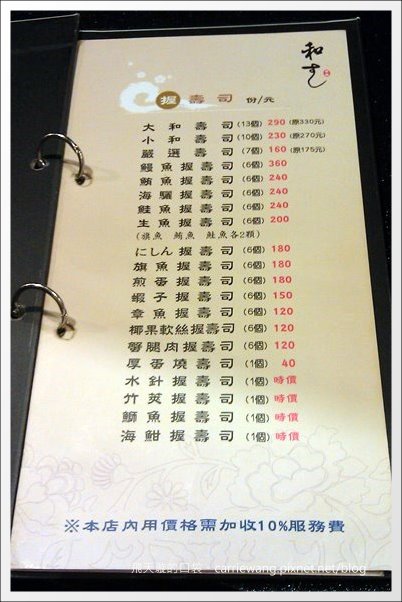 和す
握壽司 份/元
大和壽司(13個) 290 (原330元)
小和壽司(10個) 230 (原270元)
嚴選壽司(7個) 160 (原175元)
鰻魚握壽司(6個) 360
鮪魚握壽司(6個) 240
海鱺握壽司(6個) 240
鮭魚握壽司(6個) 240
生魚握壽司(6個) 200
(旗魚 鮪魚 鮭魚各2顆)
にしん握壽司(6個) 180
旗魚握壽司(6個) 180
煎蛋握壽司(6個) 180
蝦子握壽司(6個) 150
章魚握壽司(6個) 120
椰果軟絲握壽司(6個) 120
蟹腿肉握壽司(6個) 120
厚蛋燒壽司(1個) 40
水針握壽司(1個) 時價
竹筴握壽司(1個) 時價
鰤魚握壽司(1個) 時價
海魽握壽司(1個) 時價
※本店內用價格需加收10%服務費
carriewang.pixnet.net/blog